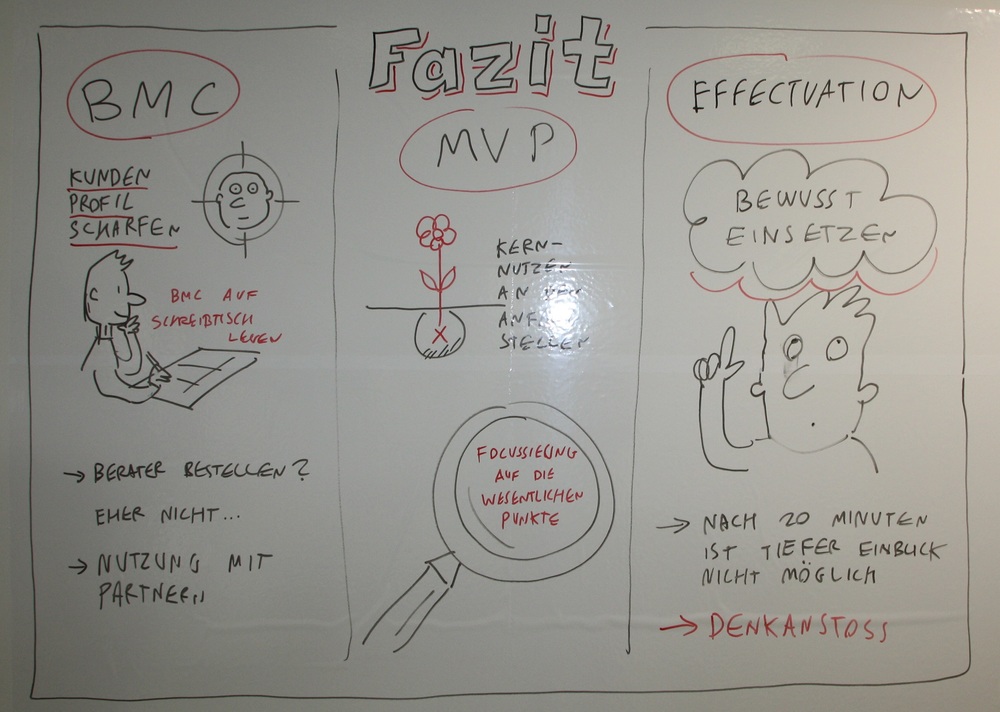 Fazit
BMC
KUNDEN
PROFIL
SCHÄRFEN
BMC AUF
SCHREIBTISCH
LEGEN
→ BERATER BESTELLEN?
EHER NICHT...
→ NUTZUNG MIT
PARTNERN
MVP
KERN-
NUTZEN
AN DEN
ANFANG
STELLEN
X
FOCUSSIERUNG
AUF DIE
WESENTLICHEN
PUNKTE
EFFECTUATION
BEWUSST
EINSETZEN
→ NACH 20 MINUTEN
IST TIEFER EINBLICK
NICHT MÖGLICH
→ DENKANSTOSS